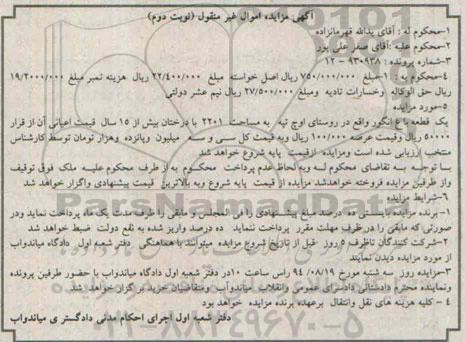 آگهی مزایده اموال غیر منقول (نوبت دوم)
۱-محکوم له : آقای یدالله قهرمانزاده
۲-محکوم علیه :آقای صفر علی پور
۳-شماره پرونده : ۹۳۰۹۳۸ - ۱۲
۴-محکوم به : ۱-مبلغ ۷۵۰/۰۰۰/۰۰۰ ریال اصل خواسته مبلغ ۲۲/۴۰۰/۰۰۰ ریال هزینه تمبر مبلغ ۱۹/۲۰۰۰/۰۰۰
ریال حق الوکاله وخسارات تادیه ومبلغ ۲۷/۵۰۰/۰۰۰ ریال نیم عشر دولتی
۵-مورد مزایده
یک قطعه باغ انگور واقع در روستای اوچ تپه به مساحت ۲۲۰۱ با درختان بیش از ۱۵ سال قیمت اعیانی آن از قرار
۵۰۰۰۰ ریال وقیمت عرصه ۱۰۰/۰۰۰ ریال وبه قیمت کل سی و سه میلیون وپانزده وهزار تومان توسط کارشناس
منتخب ارزیابی شده است ومزایده ازقیمت پایه شروع خواهد شد
با توجه به تقاضای محکوم له وبه لحاظ عدم پرداخت محکوم به از طرف محکوم علیه ملک فوق توقیف
واز طرفین مزایده فروخته خواهدشد مزایده از قیمت پایه شروع وبه بالاترین قیمت پیشنهادی واگزار خواهد شد
۶-شرایط مزایده
۱- برنده مزایده بایستی ده درصد مبلغ پیشنهادی را فی المجلس و مابقی را ظرف مدت یک ماه پرداخت نماید ودر
صورتی که مابقی را در ظرف مهلت مقرر پرداخت ننماید ده درصد واریز شده به نفع دولت ضبط خواهد شد
۲-شرکت کنندگان تاظرف ۵ روز قبل از تاریخ شروع مزایده میتوانند با هماهنگی دفتر شعبه اول دادگاه میاندواب
از مورد مزایده دیدن نمایند
۳-مزایده روز سه شنبه مورخ ۹۴/۰۸/۱۹ راس ساعت ۱۰در دفتر شعبه اول دادگاه میاندواب با حضور طرفین پرونده
ونماینده محترم دادستانی دادسرای عمومی وانقلاب میاندواب ومتقاضیان خرید بر گزار خواهد شد
۴ - کلیه هزینه های نقل وانتقال برعهده برنده مزایده خواهد بود
دفتر شعبه اول اجرای احکام مدنی دادگستری میاندواب
ParsNamadData
۰۲۱-۸۸۳۴۹۶۷۰-۵